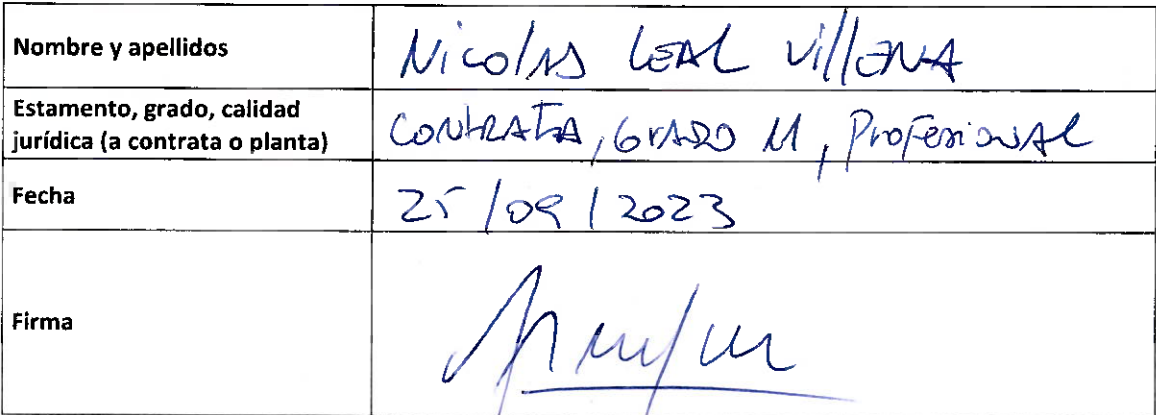 Nombre y apellidos
Nicolás LEAL VillENA
Estamento, grado, calidad
jurídica (a contrata o planta)
CONTRATA, GRADO 11, Profesional
Fecha
25/09/2023
Firma